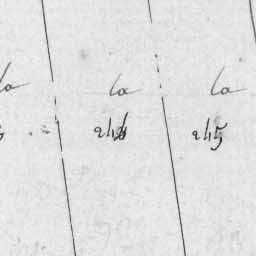 la la la
244 245